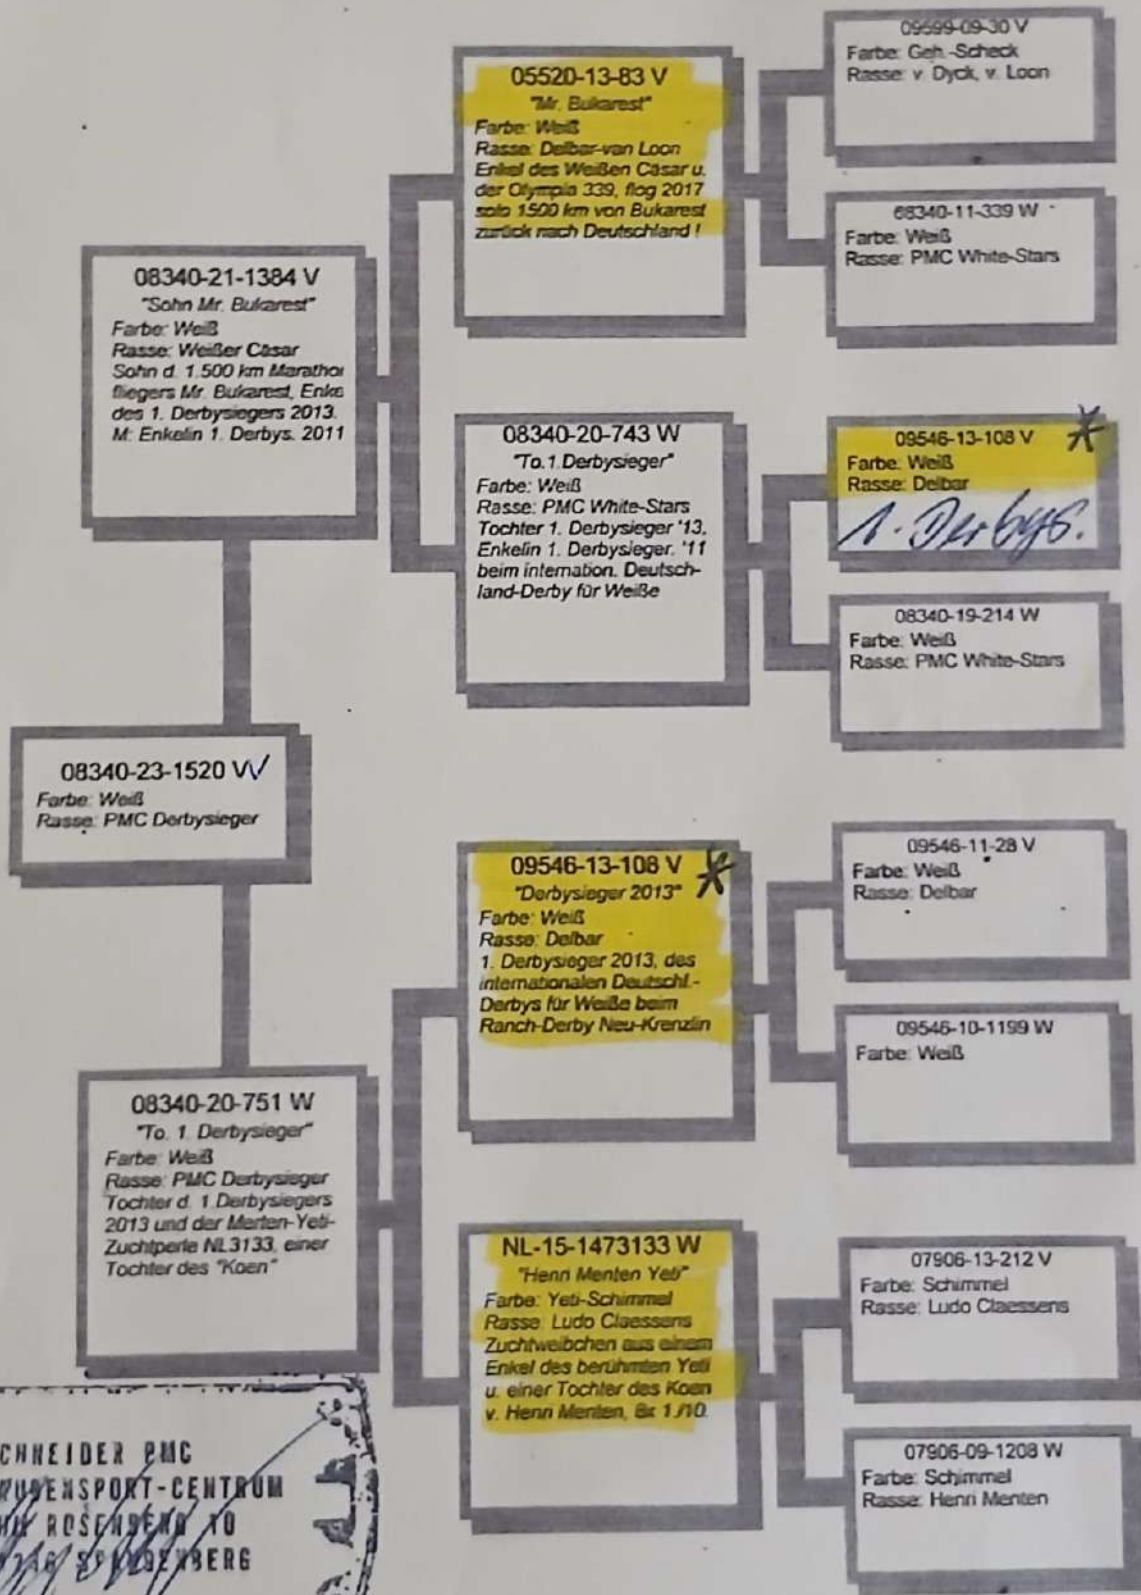 08340-23-1520 W
Farbe: Weiß
Rasse: PMC Derbysieger
08340-21-1384 V
"Sohn Mr. Bukarest"
Farbe: Weiß
Rasse: Weißer Cäsar
Sohn d. 1.500 km Marathon
fliegers Mr. Bukarest, Enke
des 1. Derbysiegers 2013.
M: Enkelin 1. Derbys. 2011
08340-20-751 W
"To. 1. Derbysieger"
Farbe: Weiß
Rasse: PMC Derbysieger
Tochter d. 1.Derbysiegers
2013 und der Merten-Yeti-
Zuchtperle NL3133, einer
Tochter des "Koen"
05520-13-83 V
"Mr. Bukarest"
Farbe: Weiß
Rasse: Delbar-van Loon
Enkel des Weißen Cäsar u.
der Olympia 339, flog 2017
solo 1500 km von Bukarest
zurück nach Deutschland !
08340-20-743 W
"To.1.Derbysieger"
Farbe: Weiß
Rasse: PMC White-Stars
Tochter 1. Derbysieger '13,
Enkelin 1. Derbysieger. '11
beim internation. Deutsch-
land-Derby für Weiße
09546-13-108 V *
"Derbysieger 2013"
Farbe: Weiß
Rasse: Delbar
1. Derbysieger 2013, des
internationalen Deutschl.-
Derbys für Weiße beim
Ranch-Derby Neu-Krenzlin
NL-15-1473133 W
"Henri Menten Yeti"
Farbe: Yeti-Schimmel
Rasse: Ludo Claessens
Zuchtweibchen aus einem
Enkel des berühmten Yeti
u. einer Tochter des Koen
v. Henri Menten, 8x 1./10.
09599-09-30 V
Farbe: Geh.-Scheck
Rasse: v. Dyck, v. Loon
68340-11-339 W
Farbe: Weiß
Rasse: PMC White-Stars
09546-13-108 V *
Farbe: Weiß
Rasse: Delbar
1. Derbys.
08340-19-214 W
Farbe: Weiß
Rasse: PMC White-Stars
09546-11-28 V
Farbe: Weiß
Rasse: Delbar
09546-10-1199 W
Farbe: Weiß
07906-13-212 V
Farbe: Schimmel
Rasse: Ludo Claessens
07906-09-1208 W
Farbe: Schimmel
Rasse: Henri Menten
CHNEIDER PMC
UBENSPORT-CENTRUM
ROSENBERG 10
SPANGENBERG